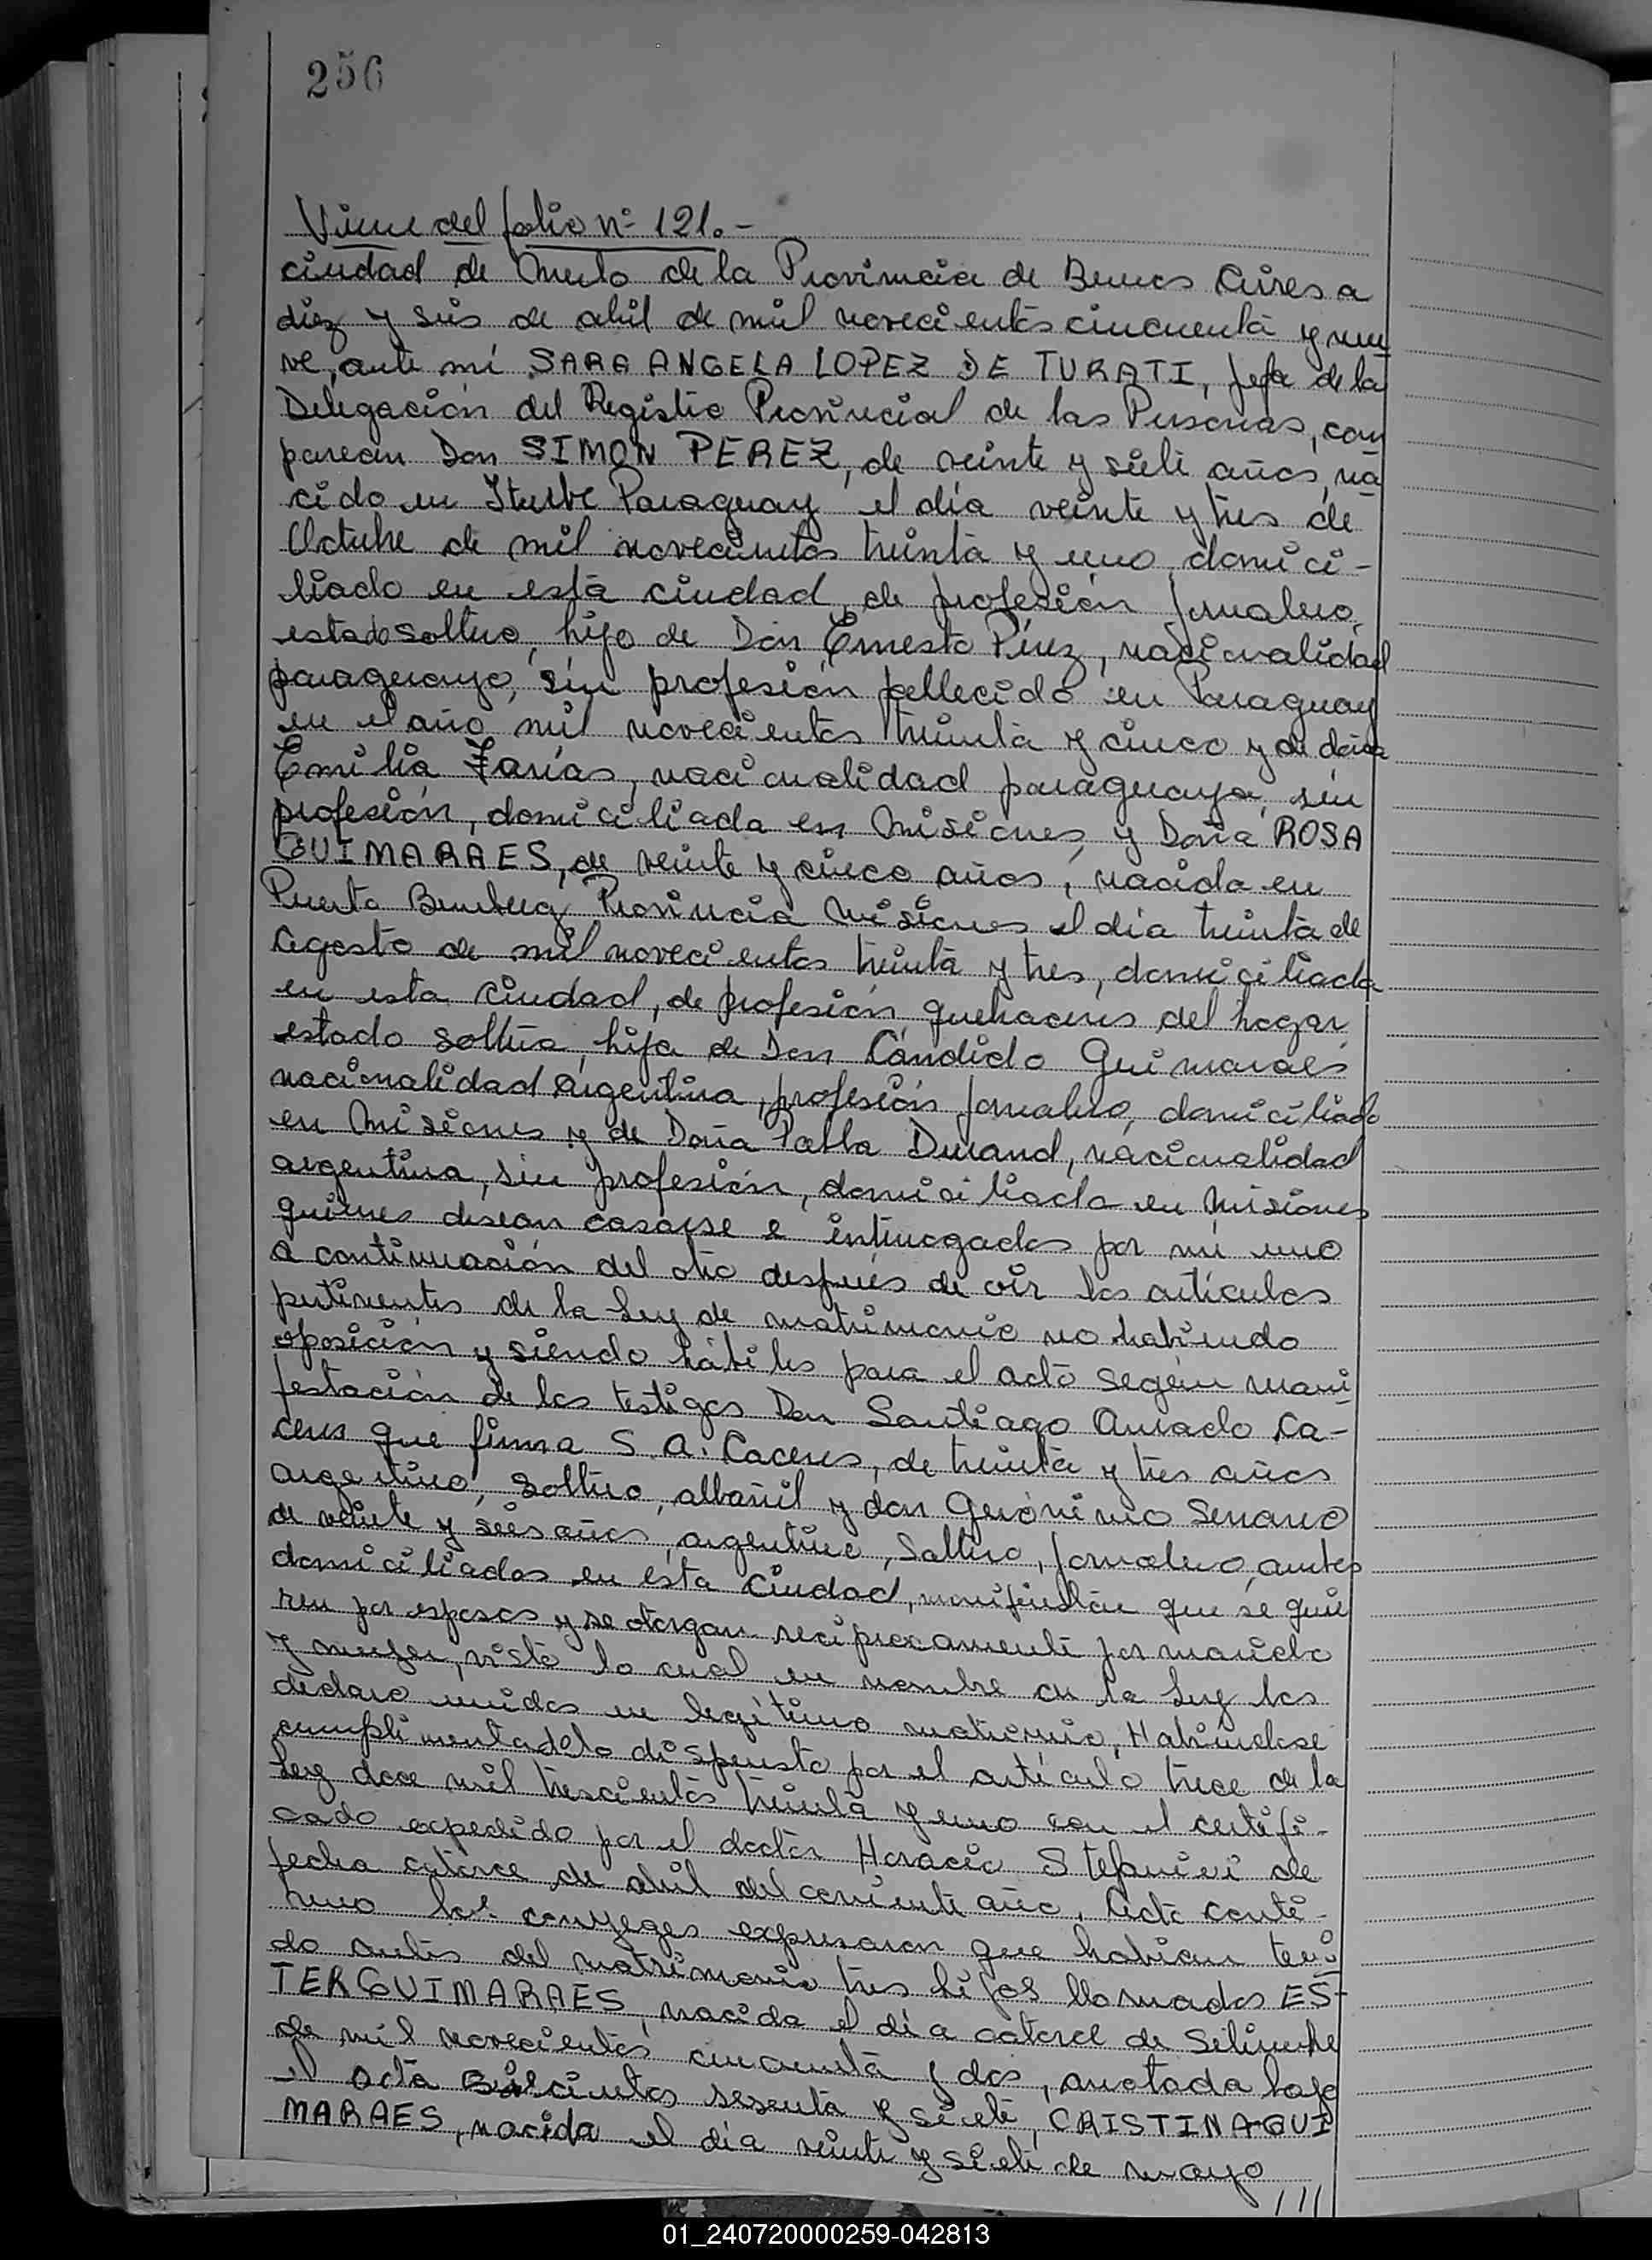 256
Viene del folio nº 121.-
ciudad de Merlo de la Provincia de Buenos Aires a
diez y seis de abril de mil novecientos cincuenta y nue
ve, ante mí SARA ANGELA LOPEZ DE TURATI, Jefa de la
Delegación del Registro Provincial de las Personas, com
parecen Don SIMON PEREZ, de veinte y siete años, na
cido en Iturbe Paraguay el día veinte y tres de
Octubre de mil novecientos treinta y uno, domici-
liado en esta ciudad, de profesión jornalero,
estado soltero, hijo de Don Ernesto Pérez, nacionalidad
paraguayo, sin profesión fallecido en Paraguay
en el año mil novecientos treinta y cinco y de doña
Emilia Farías, nacionalidad paraguaya, sin
profesión, domiciliada en Misiones, y Doña ROSA
GUIMARAES, de veinte y cinco años, nacida en
Puerto Bemberg Provincia Misiones el día treinta de
Agosto de mil novecientos treinta y tres, domiciliada
en esta ciudad, de profesión quehaceres del hogar,
estado soltera, hija de Don Cándido Guimaraes
nacionalidad argentina, profesión jornalero, domiciliado
en Misiones y de Doña Pabla Durand, nacionalidad
argentina, sin profesión, domiciliada en Misiones
quienes desean casarse e interrogados por mí uno
a continuación del otro después de oír los artículos
pertinentes de la Ley de matrimonio no habiendo
oposición y siendo hábiles para el acto según mani
festación de los testigos Don Santiago Amado Ca-
ceres que firma S. A. Caceres, de treinta y tres años
argentino, soltero, albañil y don Gerónimo Serrano
de veinte y seis años, argentino, soltero, jornalero, ambos
domiciliados en esta Ciudad, manifiestan que se quie
ren por esposos y se otorgan recíprocamente por marido
y mujer, visto lo cual en nombre de la Ley los
declaro unidos en legítimo matrimonio. Habiendose
cumplimentado lo dispuesto por el artículo trece de la
Ley doce mil trescientos treinta y uno con el certifi-
cado expedido por el doctor Horacio Stefanini de
fecha catorce de abril del corriente año. Acto conti-
nuo los conyuges expresaron que habian teni
do antes del matrimonio tres hijos llamados ES-
TER GUIMARAES, nacida el día catorce de Setiembre
de mil novecientos cincuenta y dos, anotada bajo
el acta seiscientos sesenta y siete, CRISTINA GUI
MARAES, nacida el día veinte y siete de mayo
///
01_240720000259-042813